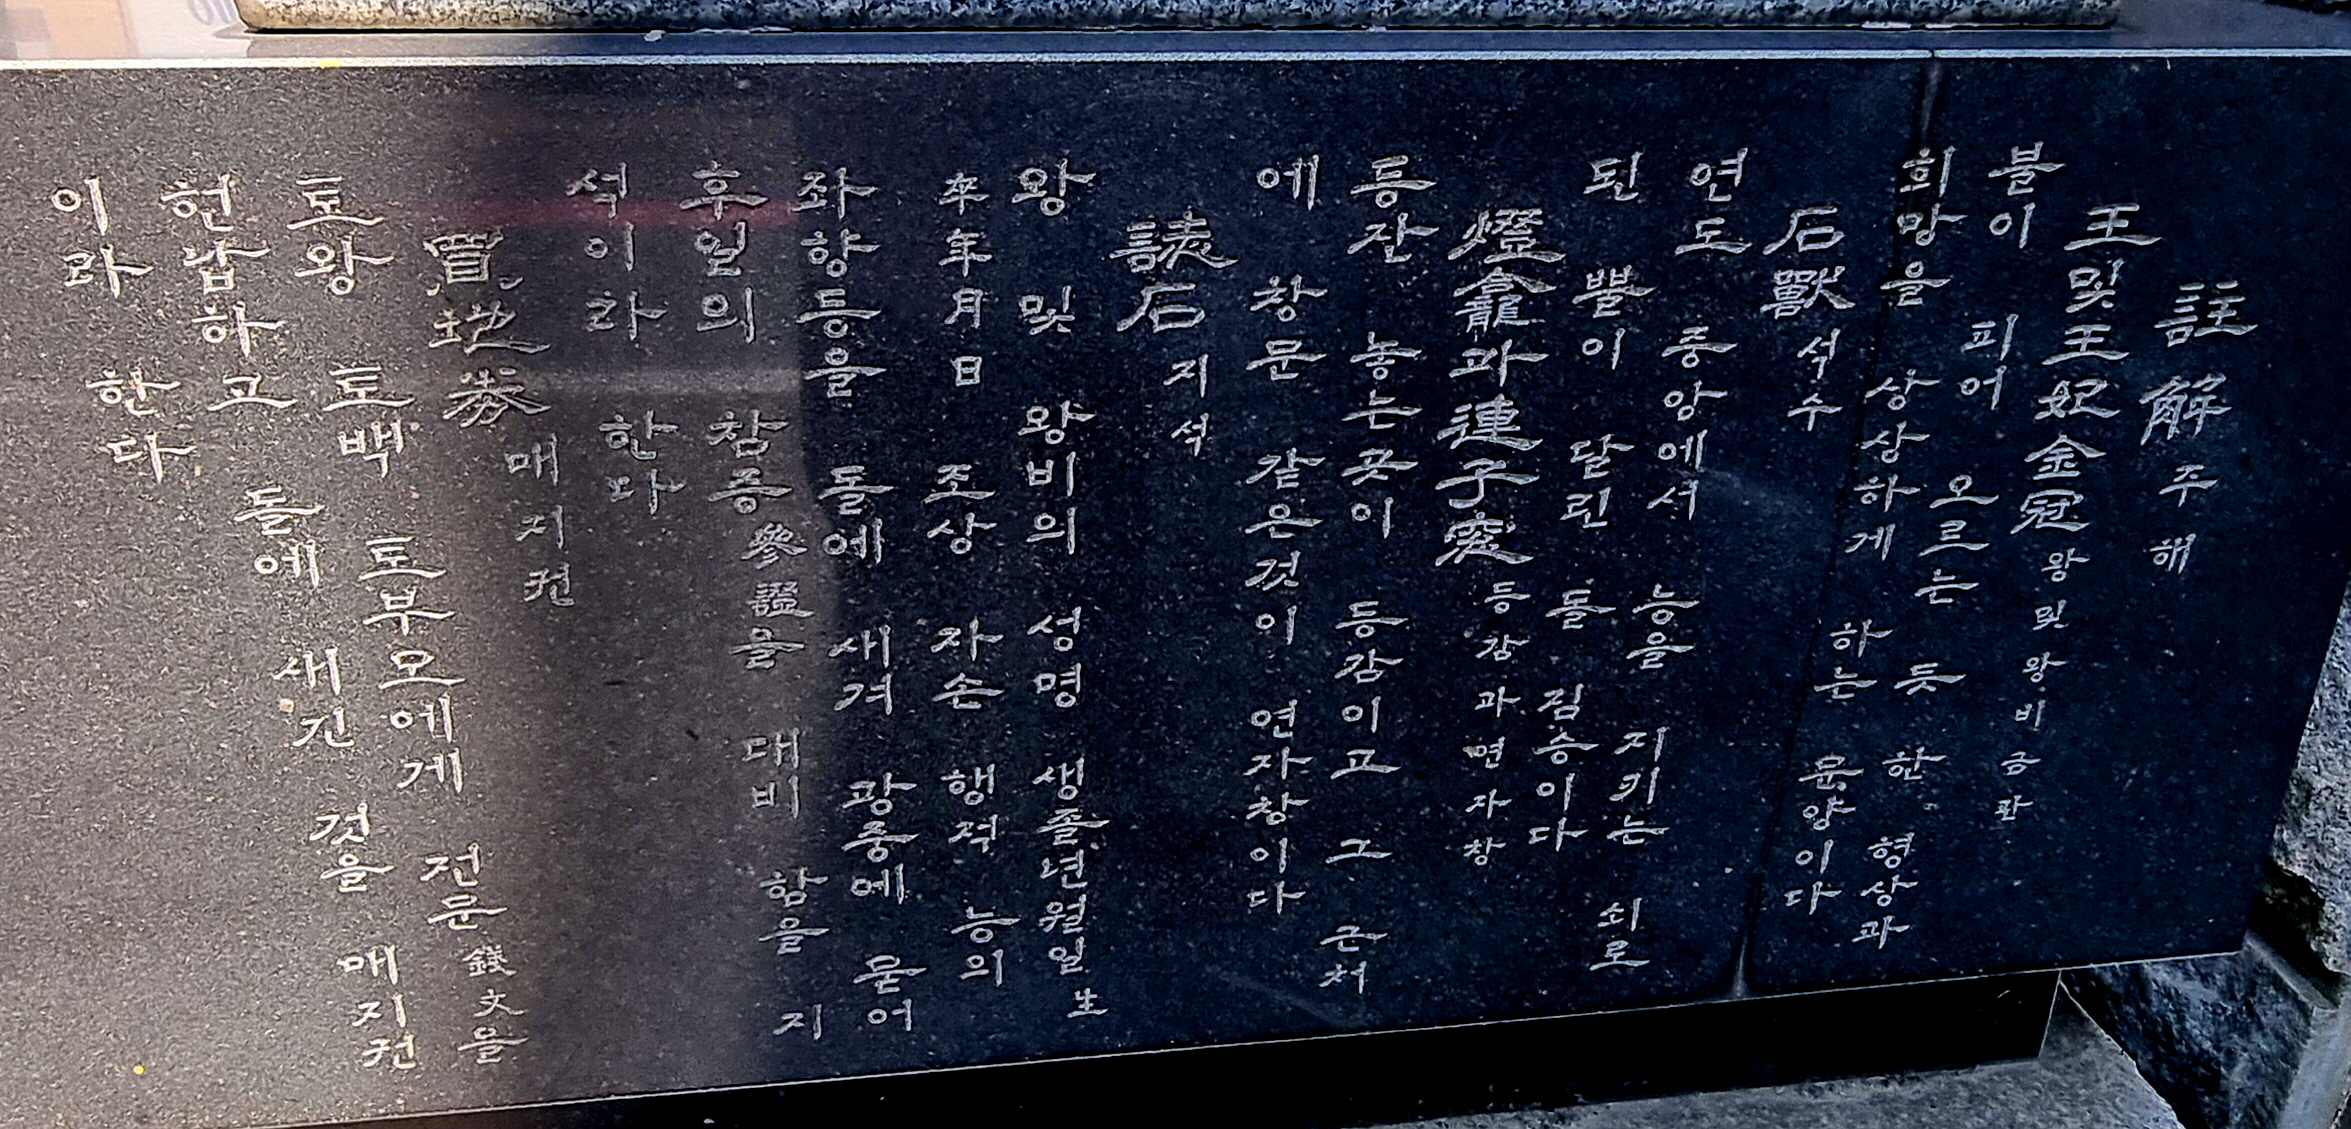 註解 주해
王 및 王妃金冠 왕 및 왕비 금관
불이 피어 오르는 듯 한 형상과
희망을 상상하게 하는 문양이다
石獸 석수
연도 중앙에서 능을 지키는 쇠로
된 뿔이 달린 돌 짐승이다
燈龕과 連子窓 등감과 연자창
등잔 놓는곳이 등감이고 그 근처
에 창문 같은것이 연자창이다
誌石 지석
왕 및 왕비의 성명 생졸년월일 生
卒年月日 조상 자손 행적 능의
좌향등을 돌에 새겨 광중에 묻어
후일의 참증 參證을 대비 함을 지
석이라 한다
買地券 매지권
토왕 토백 토부모에게 전문 錢文을
헌납하고 돌에 새긴 것을 매지권
이라 한다